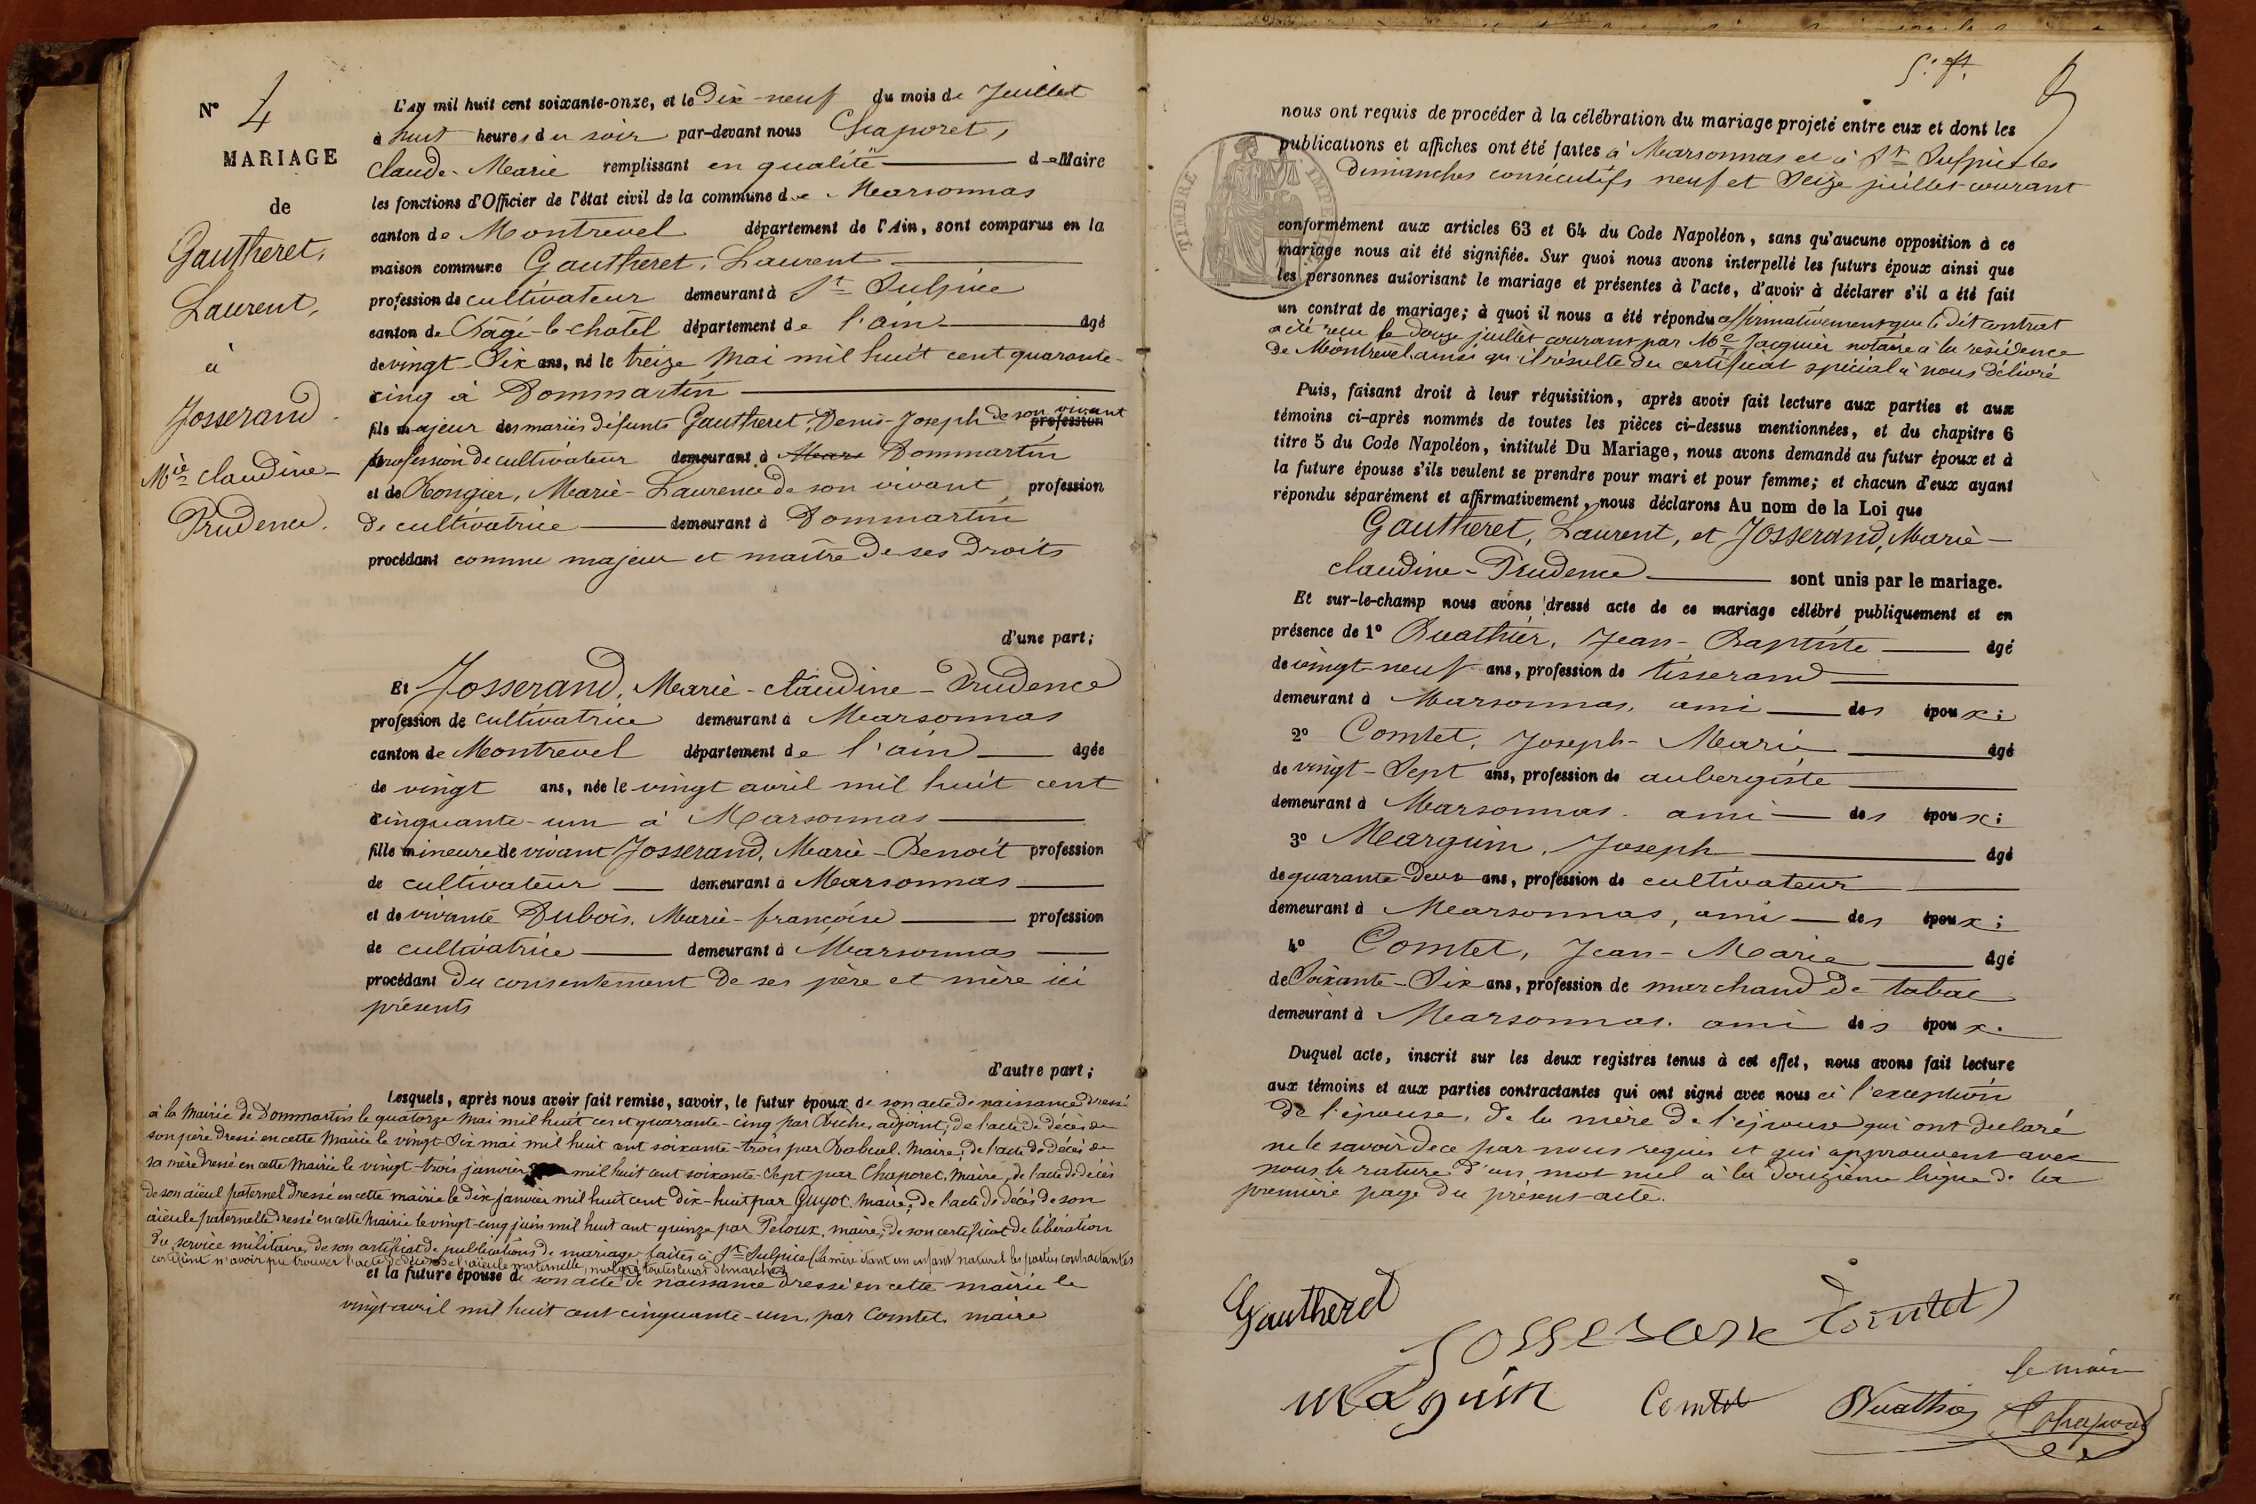 N° 4
MARIAGE
de
Gautheret,
Laurent,
à
Josserand
Mie claudine-
Prudence.
L'AN mil huit cent soixante-onze, et le Dix-neuf du mois de Juillet
à huit heures du soir par-devant nous Chaporet,
Claude-Marie remplissant en qualité de Maire
les fonctions d'Officier de l'état civil de la commune de Marsonnas
canton de Montrevel département de l'Ain, sont comparus en la
maison commune Gautheret, Laurent
profession de cultivateur demeurant à St Sulpice
canton de Bâgé-le-chatel département de l'ain âgé
de vingt-Six ans, né le treize Mai mil huit cent quarante-
cinq à Dommartin
fils majeur des mariés défunts Gautheret, Denis-Joseph de son vivant profession
profession de cultivateur demeurant à Mars Dommartin
et de Rongier, Marie-Laurence de son vivant profession
de cultivatrice demeurant à Dommartin
procédant comme majeur et maître de ses droits
d'une part;
Et Josserand, Marie-claudine-Prudence
profession de cultivatrice demeurant à Marsonnas
canton de Montrevel département de l'ain âgée
de vingt ans, née le vingt avril mil huit cent
cinquante-un à Marsonnas
fille mineure de vivant Josserand, Marie-Benoit profession
de cultivateur demeurant à Marsonnas
et de vivante Dubois, Marie-françoise profession
de cultivatrice demeurant à Marsonnas
procédant du consentement de ses père et mère ici
présents
d'autre part;
Lesquels, après nous avoir fait remise, savoir, le futur époux de son acte de naissance dressé
à la Mairie de Dommartin le quatorze mai mil huit cent quarante-cinq par Piche, adjoint; de l'acte de décès de
son père dressé en cette Mairie le vingt-Six mai mil huit cent soixante-trois par Maire; de l'acte de décès de
sa mère dressé en cette Mairie le vingt-trois janvier mil huit cent soixante-Sept par Chaporet, Maire; de l'acte de décès
de son aïeul paternel dressé en cette mairie le dix janvier mil huit cent dix-huit par Guyot, Maire; de l'acte de décès de son
aïeule paternelle dressé en cette Mairie le vingt-cinq juin mil huit cent quinze par Peloux, maire; de son certificat de libération
du service militaire, de son certificat de publications de mariage faites à St Sulpice (la mère étant un enfant naturel les parties contractantes
certifient n'avoir pu trouver l'acte de décès de l'aïeule maternelle, malgré toutes leurs démarches
et la future épouse de son acte de naissance dressé en cette mairie le
vingt avril mil huit cent cinquante-un, par Comtet, maire
5
nous ont requis de procéder à la célébration du mariage projeté entre eux et dont les
publications et affiches ont été faites à Marsonnas et à St Sulpice les
dimanches consécutifs neuf et Seize juillet courant
TIMBRE IMPÉRIAL
conformément aux articles 63 et 64 du Code Napoléon, sans qu'aucune opposition à ce
mariage nous ait été signifiée. Sur quoi nous avons interpellé les futurs époux ainsi que
les personnes autorisant le mariage et présentes à l'acte, d'avoir à déclarer s'il a été fait
un contrat de mariage; à quoi il nous a été répondu affirmativement que le dit contrat
a été reçu le douze juillet courant par Me Jacquier notaire à la résidence
de Montrevel, ainsi qu'il résulte du certificat spécial à nous délivré
Puis, faisant droit à leur réquisition, après avoir fait lecture aux parties et aux
témoins ci-après nommés de toutes les pièces ci-dessus mentionnées, et du chapitre 6
titre 5 du Code Napoléon, intitulé Du Mariage, nous avons demandé au futur époux et à
la future épouse s'ils veulent se prendre pour mari et pour femme; et chacun d'eux ayant
répondu séparément et affirmativement, nous déclarons Au nom de la Loi que
Gautheret, Laurent, et Josserand, Marie-
claudine-Prudence sont unis par le mariage.
Et sur-le-champ nous avons dressé acte de ce mariage célébré publiquement et en
présence de 1° Buathier, Jean-Baptiste âgé
de vingt-neuf ans, profession de tisserand
demeurant à Marsonnas, ami des époux;
2° Comtet, Joseph-Marie âgé
de vingt-Sept ans, profession de aubergiste
demeurant à Marsonnas, ami des époux;
3° Marguin, Joseph âgé
de quarante-deux ans, profession de cultivateur
demeurant à Marsonnas, ami des époux;
4° Comtet, Jean-Marie âgé
de Soixante-Six ans, profession de marchand de tabac
demeurant à Marsonnas, ami des époux.
Duquel acte, inscrit sur les deux registres tenus à cet effet, nous avons fait lecture
aux témoins et aux parties contractantes qui ont signé avec nous à l'exception
de l'épouse, de la mère de l'épouse qui ont déclaré
ne le savoir de ce par nous requis et qui approuvent avec
nous la rature d'un mot nul à la douzième ligne de la
première page du présent acte.
Gautheret
Josserand
Comtet
maguin
Comtet
Buathier
le maire
Chaporet